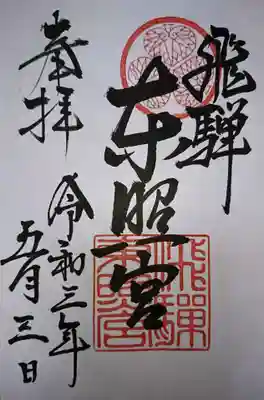 飛騨
東照宮
奉拝
令和三年
五月三日
飛騨東照宮